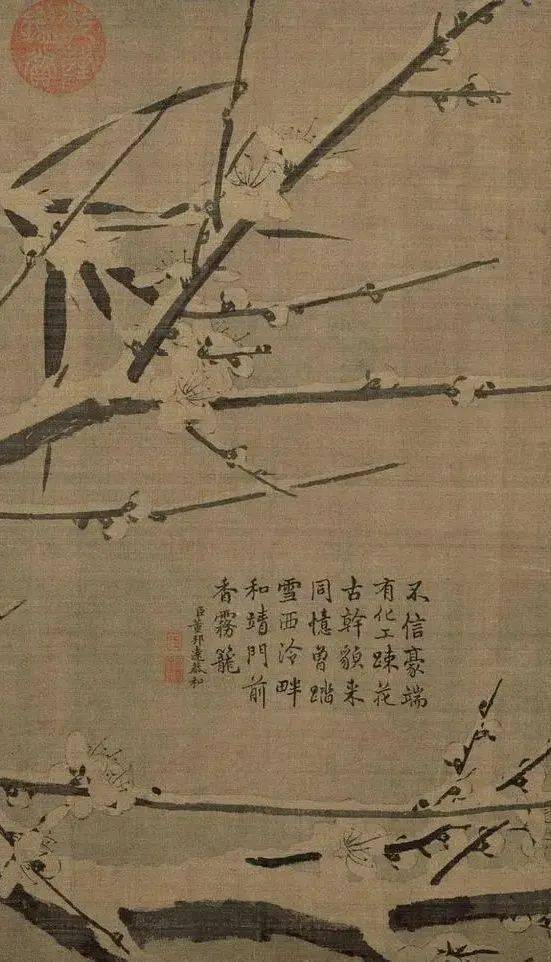 不信豪端
有化工踈花
古幹貌来
同憶曾踏
雪西泠畔
和靖門前
香霧籠
臣董邦達敬和